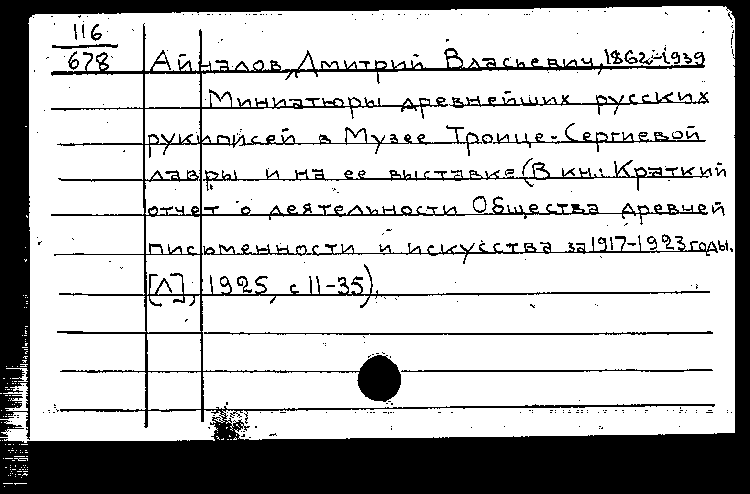 116
678
Айналов, Дмитрий Власьевич, 1862-1939
Миниатюры древнейших русских
рукописей в Музее Троице-Сергиевой
лавры и на ее выставке (В кн.: Краткий
отчет о деятельности Общества древней
письменности и искусства за 1917-1923 годы.
[Л], 1925, с 11-35).